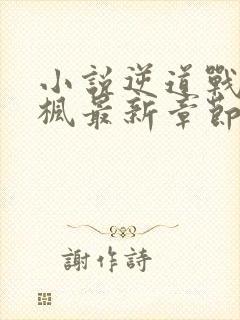 小說逆道戰
楓最新章節
謝作詩